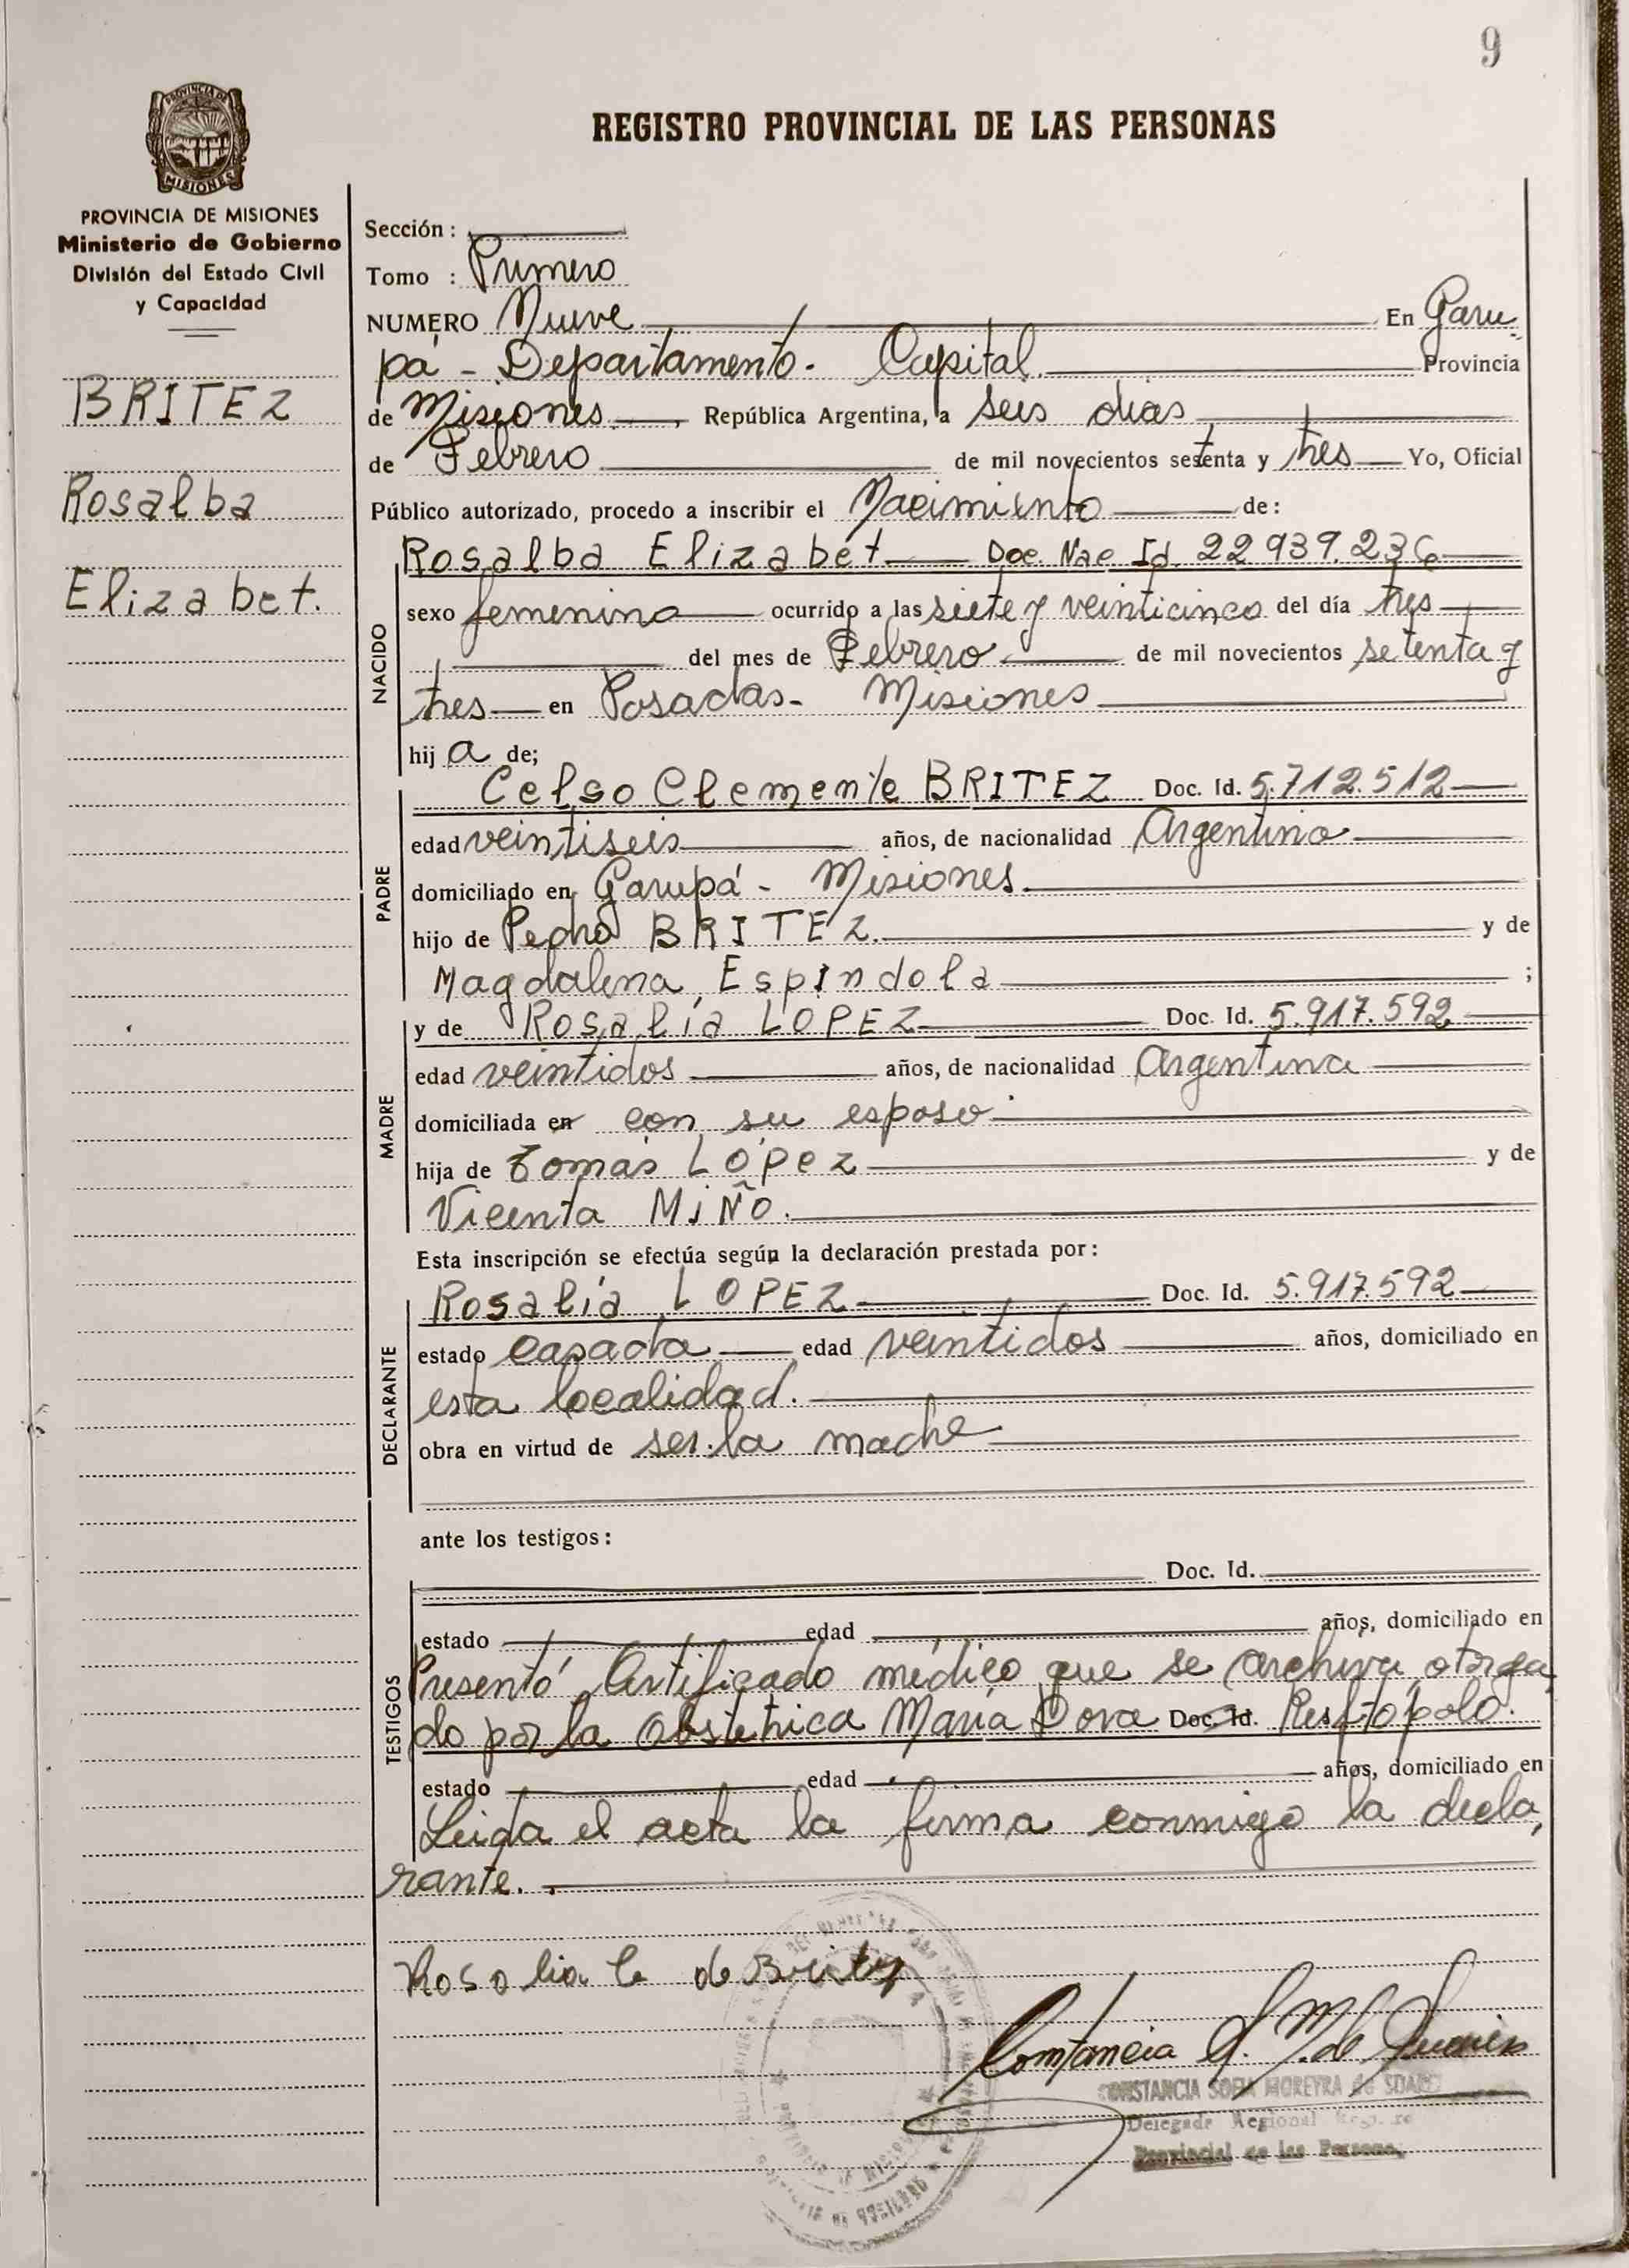 9
REGISTRO PROVINCIAL DE LAS PERSONAS
PROVINCIA DE MISIONES
PROVINCIA DE MISIONES
Ministerio de Gobierno
División del Estado Civil
y Capacidad
BRITEZ
Rosalba
Elizabet.
Sección :
Tomo : Primero
NUMERO Nueve En Garu-
pá - Departamento - Capital Provincia
de Misiones, República Argentina, a seis dias
de Febrero de mil novecientos setenta y tres Yo, Oficial
Público autorizado, procedo a inscribir el Nacimiento de :
NACIDO
Rosalba Elizabet Doc. Nac. Id. 22.939.236
sexo femenino ocurrido a las siete y veinticinco del día tres
del mes de Febrero de mil novecientos setenta y
tres en Posadas - Misiones
hij a de;
PADRE
Celso Clemente BRITEZ Doc. Id. 5.712.512
edad veintiseis años, de nacionalidad Argentino
domiciliado en Garupá - Misiones.
hijo de Pedro BRITEZ. y de
Magdalena Espíndola ;
MADRE
y de Rosalía LOPEZ Doc. Id. 5.917.592
edad veintidos años, de nacionalidad Argentina
domiciliada en con su esposo
hija de Tomás López y de
Vicenta MIÑO.
Esta inscripción se efectúa según la declaración prestada por :
DECLARANTE
Rosalía LOPEZ Doc. Id. 5.917.592
estado casada edad veintidos años, domiciliado en
esta localidad.
obra en virtud de ser la madre
ante los testigos :
TESTIGOS
Doc. Id.
estado edad años, domiciliado en
Presentó Certificado médico que se archiva, otorga
do por la Obstetrica María Dova Doc. Id.
estado edad años, domiciliado en
Leida el acta la firma conmigo la decla,
rante.
Rosalia L de Britez
Constancia S. M. de
CONSTANCIA SOFIA MOREYRA de
Delegada Regional
Provincial de las Personas